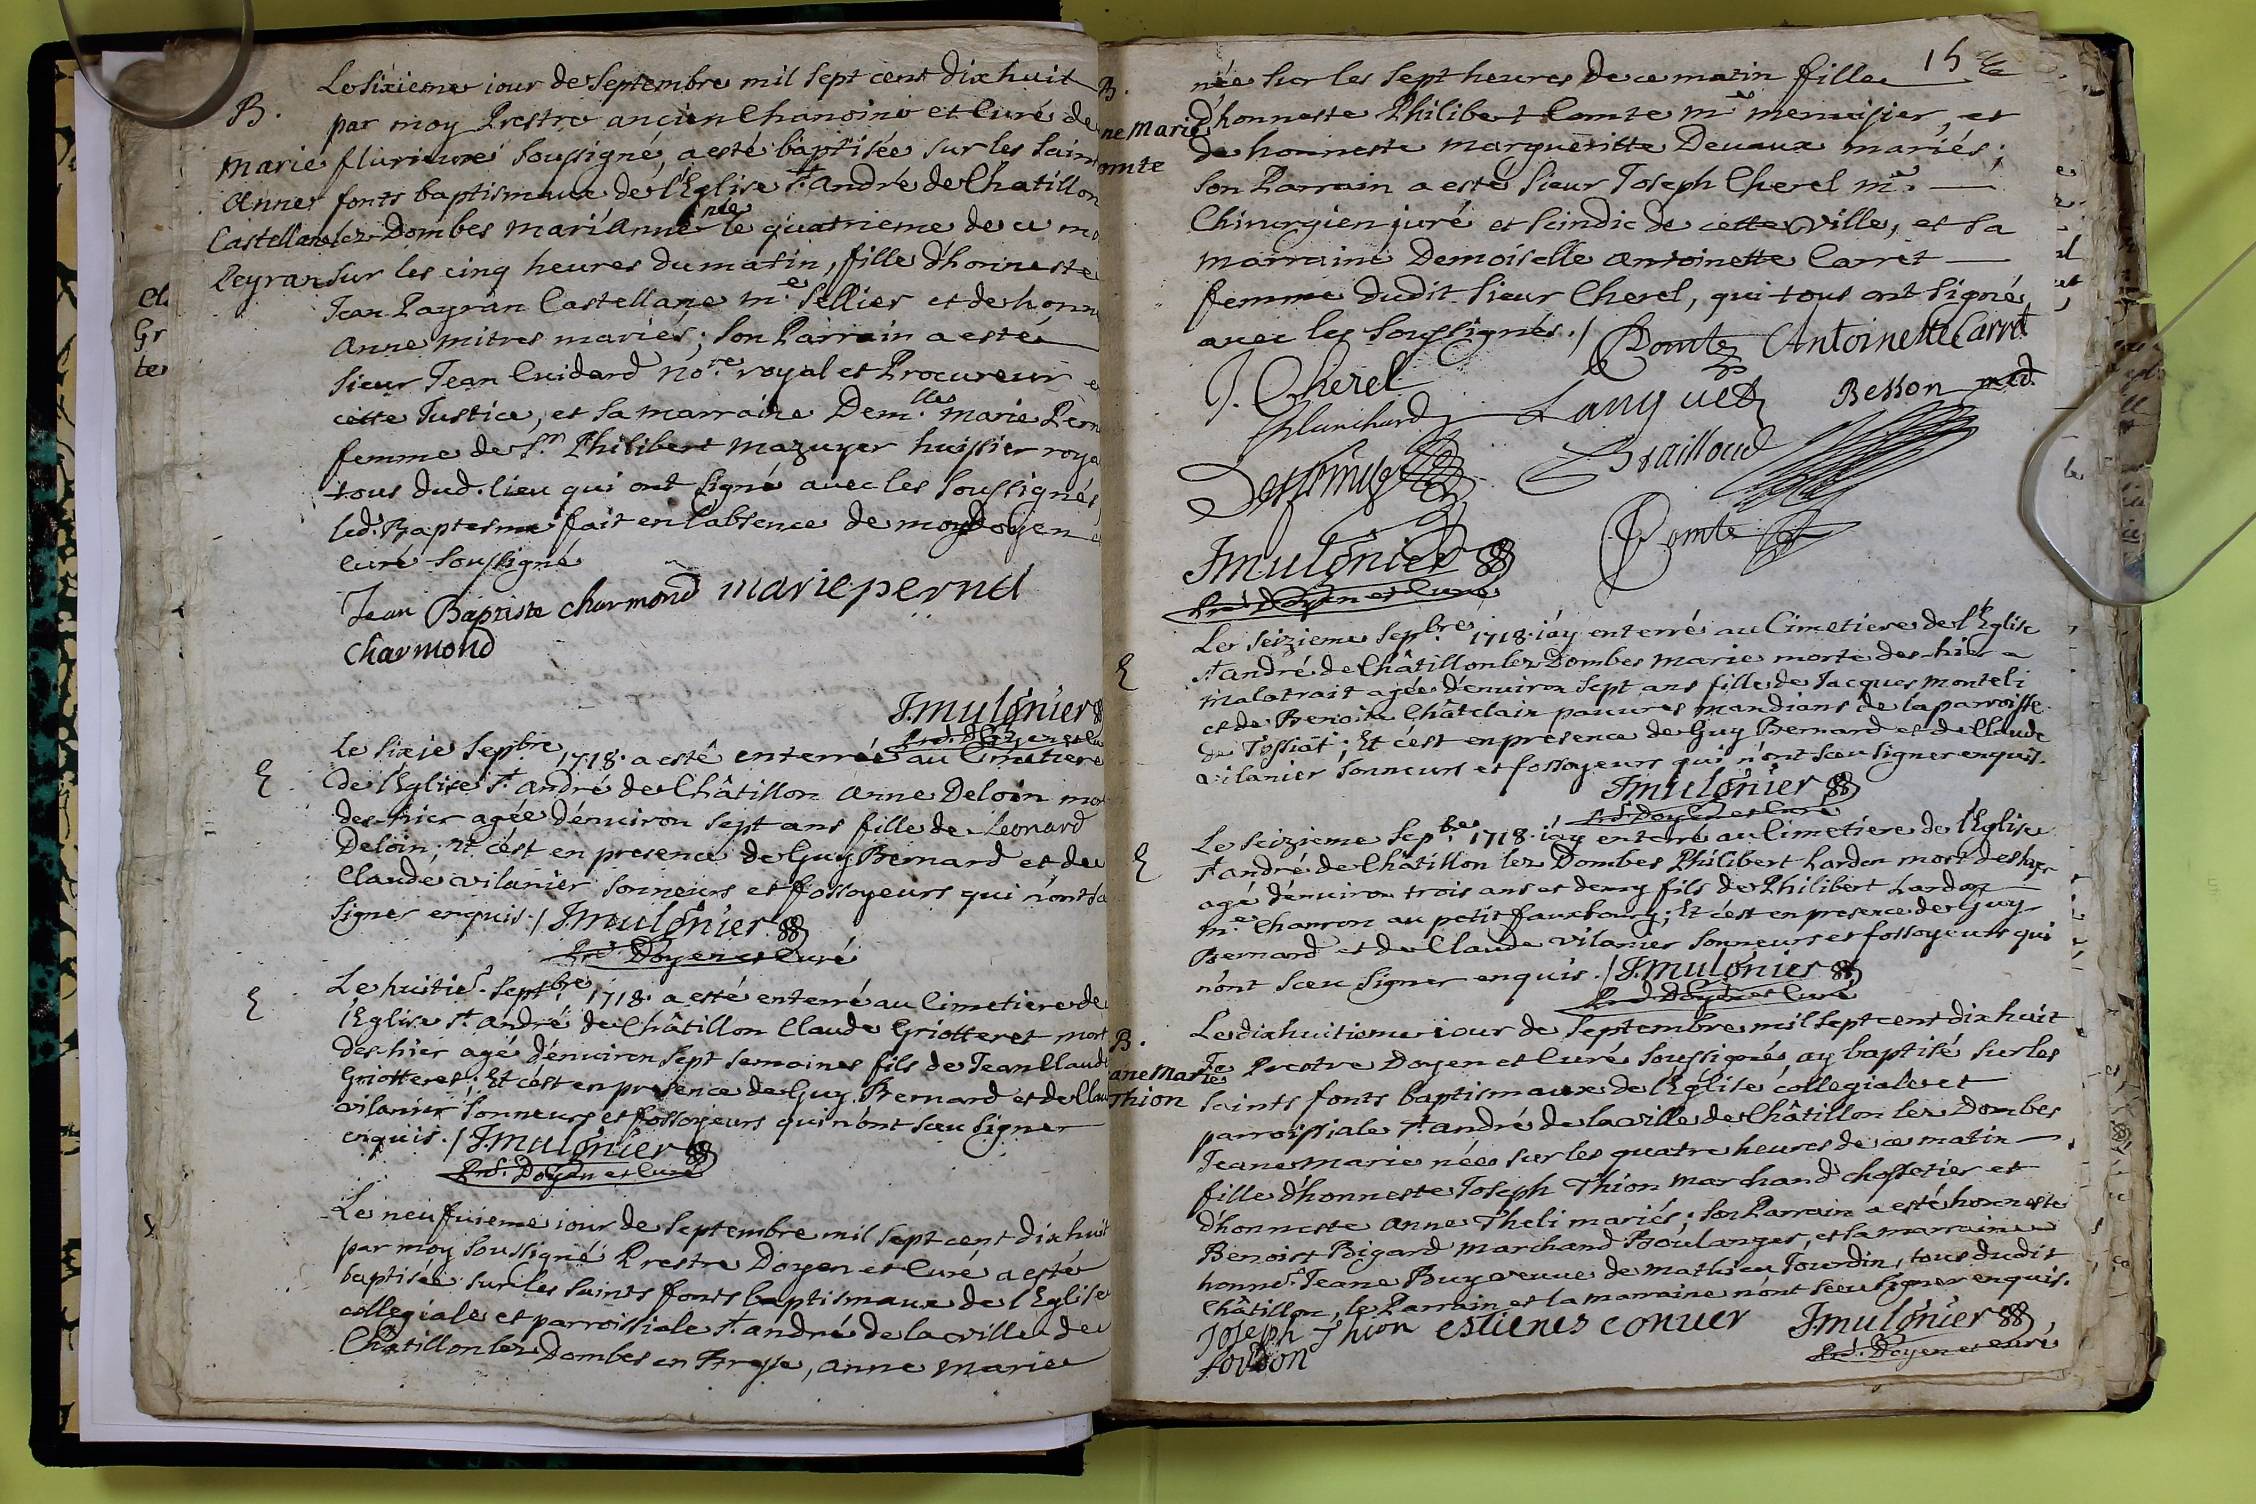 Le sixieme iour de Septembre mil sept cent dix huit
B.
par moy Prestre ancien Chanoine et Curé de
Marie
flurieure soussigné, a esté baptisée sur les saints
Anne
fonts baptismaux de l'Eglise St. André de Chatillon
Castellane
lez Dombes Marïanne née le quatrieme de ce mo
Peyran
sur les cinq heures du matin, fille d'honneste
Jean Payran Castellane me. Sellier et de honn
Anne mitres mariés; son Parrain a esté
sieur Jean Cuidard nore. royal et Procureur e
cette Justice, et sa marraine Demlle. Marie Pern
femme de Sr. Philibert Mazuyer huissier roya
tous dud. lieu qui ont signé avec les soussignés,
led. Baptesme fait en l'absence de moy Doyen
curé soussigné
Jean Baptiste charmond marie pernel
charmond
J.mulonier
Pre. Doyen et cu
E
Le sixie. Septbre. 1718. a esté enterrée au Cimetiere
de l'Eglise St. André de Châtillon Anne Deloin mor
des-hier agée d'enuiron sept ans fille de Leonard
Deloin; Et c'est en presence de Guy Bernard et de
Claude vilanier sonneurs et fossoyeurs qui n'ont sç
signer enquis./ J.mulonier
Pre. Doyen et Curé
E
Le huitie. Septbre. 1718. a esté enterré au Cimetiere de
l'Eglise St. André de Châtillon Claude Griotteret mort
des-hier agé d'enuiron sept semaines fils de Jean Claude
Griotteret; Et c'est en presence de Guy Bernard et de Clau
vilanier sonneurs et fossoyeurs qui n'ont sceu signer
enquis./ J.mulonier
Pre. Doyen et Curé
Le neufuieme iour de Septembre mil sept cent dix huit
par moy soussigné Prestre Doyen et Curé a esté
baptisée sur les saints fonts baptismaux de l'Eglise
collegiale et parroissiale St. André de la ville de
Châtillon lez Dombes en Bresse, Anne Marie
15
B.
née sur les sept heures de ce matin fille
ne Marie
d'honneste Philibert Comte me. menuisier, et
omte
de honneste Margueritte Deuaux mariés;
son Parrain a esté sieur Joseph Cherel me.
Chirurgien juré et scindic de cette ville, et sa
marraine Demoiselle Antoinette Carret
femme dudit sieur Cherel, qui tous ont signé,
avec les soussignés./ Comte Antoinette Carret
J. Cherel
Blanchard Languet Besson med.
Brailloud
J.mulonier Comte
Pre. Doyen et Curé
E
Le seizieme Sepbre. 1718. i'ay enterré au Cimetiere de l'Eglise
St. André de Châtillon lez Dombes Marie morte des-hier a
malatrait agée d'enuiron sept ans fille de Jacques Monteli
et de Benoite Châtelain pauures mandians de la parroisse
de Tossiat; Et c'est en presence de Guy Bernard et de Claude
vilanier sonneurs et fossoyeurs qui n'ont sceu signer enquis.
J.mulonier
Pre. Doyen et Curé
E
Le seizieme Sepbre. 1718. i'ay enterré au Cimetiere de l'Eglise
St. André de Châtillon lez Dombes Philibert Lardon mort des hyer
agé d'enuiron trois ans et demy fils de Philibert Lardon
me. Chanron au petit fauxbourg; Et c'est en presence de Guy
Bernard et de Claude vilanier sonneurs et fossoyeurs qui
n'ont sceu signer enquis./ J.mulonier
Pre. Doyen et Curé
B.
Le dixhuitieme iour de Septembre mil sept cent dix huit
ane Marie
Je Prestre Doyen et Curé soussigné, ay baptisé sur les
Thion
saints fonts baptismaux de l'Eglise collegiale et
parroissiale St. André de la ville de Châtillon lez Dombes
Jeane Marie née sur les quatre heures de ce matin
fille d'honneste Joseph Thion marchand chossetier et
d'honneste Anne Theli mariés; son Parrain a esté honneste
Benoist Bigard marchand Boulanger, et sa marraine
honne. Jeane Buy veuue de Mathieu Jourdin, tous dudit
Châtillon, le Parrain et la marraine n'ont sceu signer enquis.
Joseph Thion estienes conuer J.mulonier
Pre. Doyen et curé